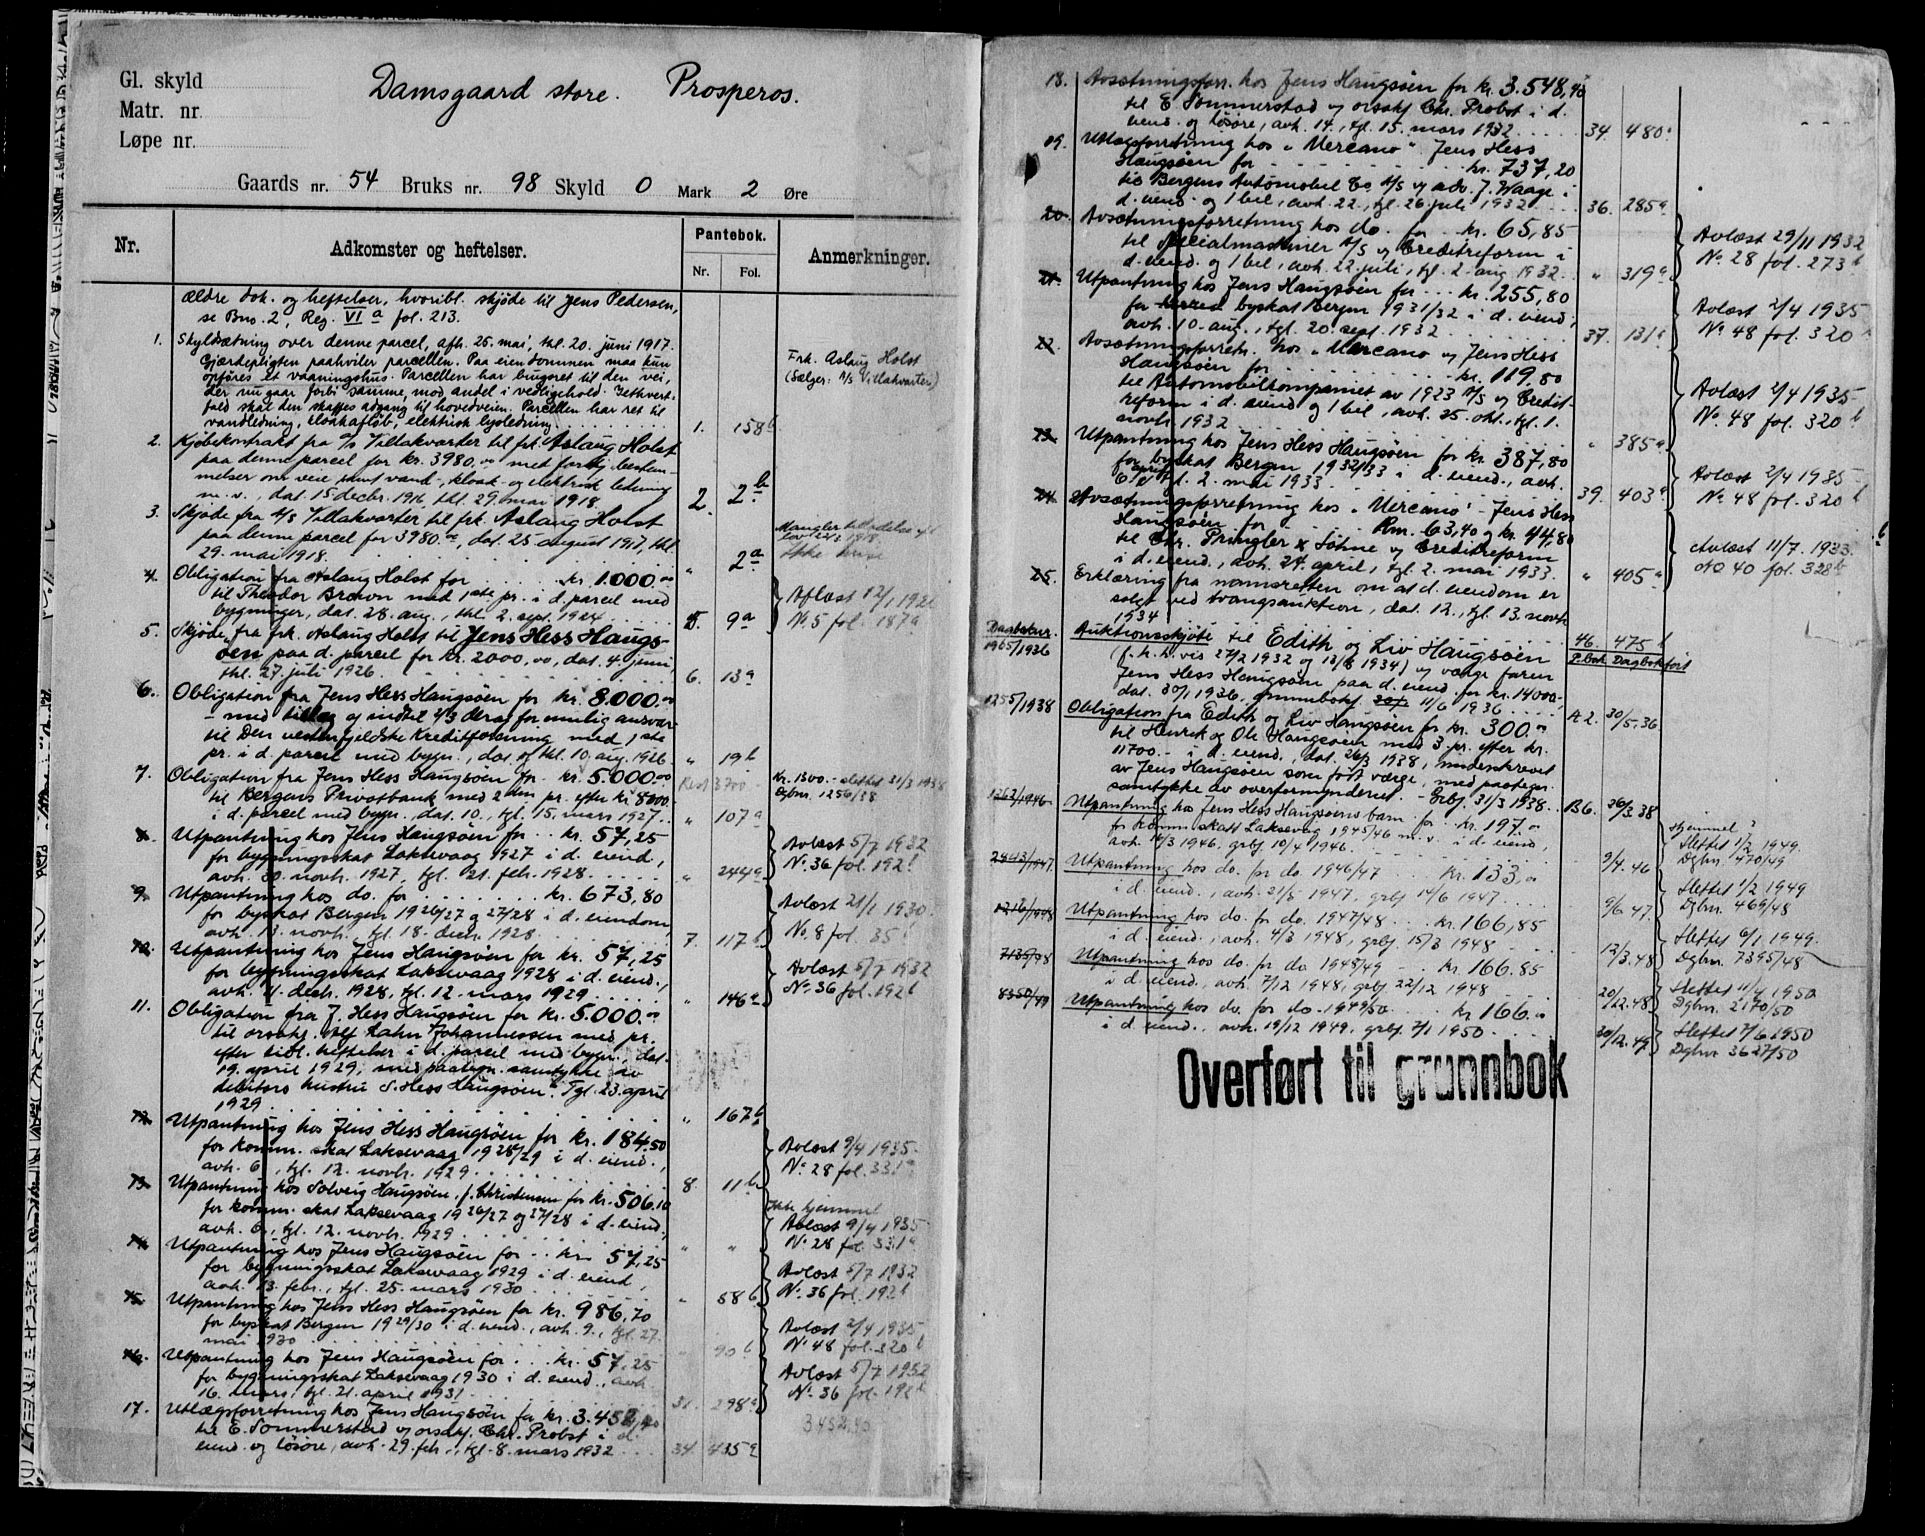 Gl. skyld
Matr. nr.
Løpe nr.
Damsgaard store. Prosperos.
Gaards nr. 54 Bruks nr. 98 Skyld 0 Mark 2 Øre
Nr.
Adkomster og heftelser.
Pantebok.
Nr. Fol.
Anmerkninger.
ældre dok. og heftelser, hvoribl. skjøde til Jens Pedersen,
se Bns. 2, Reg. VI a fol. 213.
1. Skyldsætning over denne parcel, afh. 25. mai, thl. 20. juni 1917.
Gjærdepligten paahviler parcellen. Paa eiendommen maa kun
opføres et vaaningshus. Parcellen har bugsret til den vei,
der nu gaar forbi samme, mod andel i vedligehold. Iethvert-
fald skal den skaffes adgang til hovedveien. Parcellen har ret til
vandledning, kloakafløb, elektrisk lysledning. 1. 158 b
Frk. Aslaug Holst
(Sælger: A/S Villakvarter)
2. Kjøbekontrakt fra A/S Villakvarter til frk. Aslaug Holst
paa denne parcel for kr. 3980.00 med forskj. bestem-
melser om veie samt vand-, kloak- og elektrisk ledning
m. v., dat. 15 decbr. 1916, thl. 29. mai 1918. 2. 2 b
3. Skjøde fra A/S Villakvarter til frk. Aslaug Holst
paa denne parcel for 3980.00, dat. 25 august 1917, thl.
29. mai 1918. " 2 a
Mangler tilladelse efter
lov 1918.
4. Obligation fra Aslaug Holst for kr. 1000.00
til Theodor Brown med 1ste pr. i d. parcel med
bygninger, dat. 28. aug., thl. 2. sept. 1924. 5. 9 a
Aflæst 12/1 192
No. 5 fol. 187 a
5. Skjøde fra frk. Aslaug Holst til Jens Hess Haugs-
øen paa d. parcel for kr. 2000,00, dat. 4. juni,
thl. 27. juli 1926. 6. 13 a
6. Obligation fra Jens Hess Haugsøen for kr. 8000.00
– med tillæg og indtil 2/3 deraf for mulig ansvar –
til Den vestenfjeldske Kreditforening med 1ste
pr. i d. parcel med bygn., dat. og thl. 10. aug. 1926. " 19 b
7. Obligation fra Jens Hess Haugsøen for kr. 5.000.00
til Bergens Privatbank med 2den pr. efter kr. 8000.
i d. parcel med bygn., dat. 10., tgl. 15. mars 1927. " 107 a
Rest 3700
Kr. 1300.- slettet 31/3 1938
Dgbnr. 1256/38
8. Utpantning hos Jens Haugsøen for kr. 57,25
for bygningsskat Laksevaag 1927 i d. eiend.,
avh. 30. novbr. 1927, tgl. 21. feb. 1928. " 244 a
Avlæst 5/7 1932
No. 36 fol. 192 b
9. Utpantning hos do. for kr. 673,80
for byskat Bergen 1926/27 og 27/28 i d. eiendom,
avh. 13. novbr., tgl. 18. decbr. 1928. 7. 117 b
Avlæst 21/1 1930.
No. 8 fol. 35 b
10. Utpantning hos Jens Haugsøen for kr. 57,25
for bygningsskat Laksevaag 1928 i d. eiend.,
avh. 11. decbr. 1928, tgl. 12. mars 1929. " 146 a
Avlæst 5/7 1932
No. 36 fol. 192 b
11. Obligation fra J. Hess Haugsøen for kr. 5.000.00
til orsakf. Alf Lahn Johannessen med pr.
efter tidl. heftelser i d. parcel med bygn., dat.
19. april 1929, med paategn. samtykke av
debitors hustru S. Hess Haugsøen. Tgl. 23. april
1929. " 167 b
12. Utpantning hos Jens Hess Haugsøen for kr. 184.50
for komm. skat Laksevaag 1928/29 i d. eiend.,
avh. 6., tgl. 12. novbr. 1929. 8. 11 b
Avlæst 9/4 1935.
No. 28 fol. 331 a
13. Utpantning hos Solveig Haugsøen, f. Christensen for kr. 506.10
for komm. skat Laksevaag 1926/27 og 27/28 i d. eiend.,
avh. 6., tgl. 12. novbr. 1929. " "
Ikke hjemmel
Avlæst 9/4 1935
No. 28 fol. 331 a
14. Utpantning hos Jens Haugsøen for kr. 57,25
for bygningsskat Laksevaag 1929 i d. eiend.,
avh. 13. febr., tgl. 25. mars 1930. " 58 b
Avlæst 5/7 1932
No. 36 fol. 192 b
15. Utpantning hos Jens Hess Haugsøen for kr. 986,70
for byskat Bergen 1929/30 i d. eiend., avh. 9., tgl. 27.
mai 1930 90 b
Avlæst 2/4 1935
No. 48 fol. 320 b
16. Utpantning hos Jens Haugsøen for kr. 57,25
for bygningsskat Laksevaag 1930 i d. eiend., avh.
16. mars, tgl. 21. april 1931. 31. 298 a
Avlæst 5/7 1932
No. 36 fol. 192 b
17. Utlægsforretning hos Jens Haugsøen for kr. 3.452,40
til E. Sommerstad v/ orsakf. Chr. Probst i d.
eiend. og løsøre, avh. 29. feb., tgl. 8. mars 1932. 34. 435 a
3452,40
18. Avsætningsforr. hos Jens Haugsøen for kr. 3.548,40
til E. Sommerstad v/ orsakf. Chr. Probst i d.
eiend. og løsøre, avh. 14., tgl. 15. mars 1932. 34. 480 a
19. Utlægsforretning hos "Mercano" Jens Hess
Haugsøen for kr. 737,20
til Bergens Automobil Co. A/S v/ adv. J. Waage i
d. eiend. og 1 bil, avh. 22., tgl. 26. juli 1932. 36. 285 a
20. Avsætningsforretning hos do. for kr. 65,85
til Specialmaskiner A/S v/ Creditreform i
d. eiend. og 1 bil, avh. 22. juli, tgl. 2. aug. 1932. " 319 a
Avlæst 29/11 1932
No. 28 fol. 273 b
21. Utpantning hos Jens Haugsøen for kr. 255,80
for herred byskat Bergen 1931/32 i d. eiend.,
avh. 10. aug., tgl. 20. sept. 1932. 37. 131 a
Avlæst 2/4 1935
No. 48 fol. 320
22. Avsætningsforretn. hos "Mercano" v/ Jens Hess
Haugsøen for kr. 119,80
til Automobilkompaniet av 1923 A/S v/ Credit-
reform i d. eiend. og 1 bil, avh. 25. okt., tgl. 1.
novb. 1932. " 385 a
Avlæst 2/4 1935
No. 48 fol. 320 b
23. Utpantning hos Jens Hess Haugsøen for kr. 387,80
for byskat Bergen 1932/33 i d. eiend., avh.
6. april, tgl. 2. mai 1933. 39. 403 a
Avlæst 2/4 1935
No. 48 fol. 320 b
24. Avsætningsforretning hos "Mercano" - Jens Hess
Haugsøen for Rm. 63,40 og kr. 44,80
til Chr. Pringler & Söhne v/ Creditreform
i d. eiend., avh. 24. april, tgl. 2. mai 1933. " 405 a
Avlæst 11/7. 1933.
No 40 fol. 328 b
25. Erklæring fra namsretten om at d. eiendom er
solgt ved tvangsauktion, dat. 12., tgl. 13. novbr.
1934 46. 475 b
P.bok Dagbokført
Dagboknr.
1965/1936 Auktionsskjøte til Edith og Liv Haugsøen
(f. h. h. vis 27/2 1932 og 13/8 1934) v/ værge faren
Jens Hess Haugsøen paa d. eiend. for kr. 14000,-
dat. 30/1 1936, grunnbokf. 11/6 1936. A 2. 30/5.36
1255/1938 Obligation fra Edith og Liv Haugsøen for kr. 300.00
til Henrik og Ole Haugsøen med 3. pr. efter kr.
11700.- i d. eiend., dat. 26/3 1938, underskrevet
av Jens Haugsøen som født værge, med paategn.
samtykke av overformynderiet. - Grbf. 31/3 1938. B 6. 30/3.38
1263/1946 Utpantning hos Jens Hess Haugsøens barn for kr. 197.00
for komm. skatt Laksevåg 1945/46 m. v. i d. eiend.,
avh. 14/3 1946, grbf. 10/4 1946. 9/4. 46
Hjemmel?
Slettet 1/2 1949.
Dgbnr. 470/49
2493/1947 Utpantning hos do. for do. 1946/47 kr. 133,00
i d. eiend., avh. 21/5 1947, grbf. 14/6 1947. 9/6 47
Slettet 1/2 1949
Dgbnr. 469/48
1216/1948 Utpantning hos do. for do. 1947/48 kr. 166,85
i d. eiend., avh. 4/3 1948, grbf. 15/3 1948 12/3.48
Slettet 6/1 1949.
Dgbnr. 7395/48
7135/48 Utpantning hos do. for do. 1948/49 kr. 166.85
i d. eiend., avh. 7/12 1948, grbf. 22/12 1948 20/12.48
Slettet 11/4 1950
Dgbnr. 2170/50
8350/49 Utpantning hos do. for do. 1949/50 kr 166.00
i d. eiend., avh. 19/12 1949, grbf. 7/1 1950 30/12.49
Slettet 7/6 1950
Dgbnr 3627/50
Overført til grunnbok